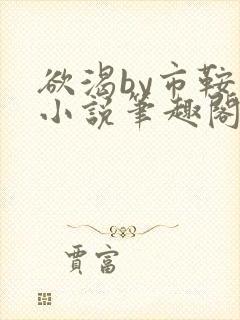 欲渴by市鞍
小説筆趣閣
賈富